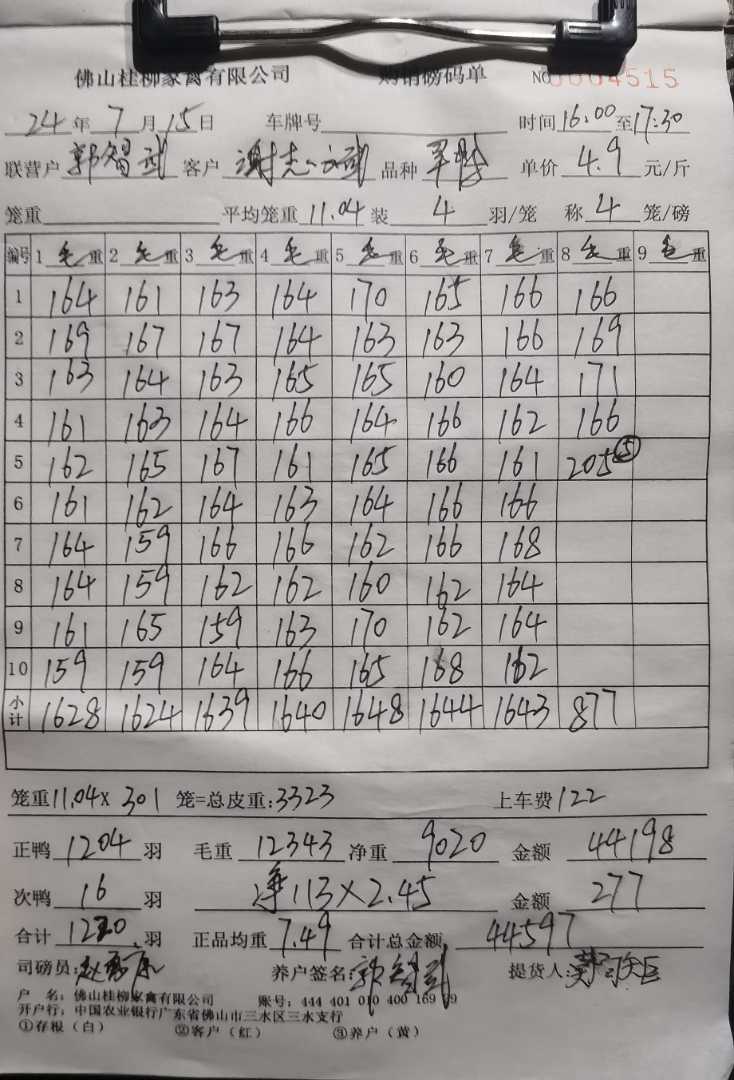 佛山桂柳家禽有限公司 购销磅码单 NO 0004515
24年7月15日 车牌号 时间16:00至17:30
联营户 郭智武 客户 谢志武 品种 单价 4.9 元/斤
笼重 平均笼重 11.04 装 4 羽/笼 称 4 笼/磅
编号 1 毛重 2 毛重 3 毛重 4 毛重 5 毛重 6 毛重 7 毛重 8 毛重 9 毛重
1 164 161 163 164 170 165 166 166
2 169 167 167 164 163 163 166 169
3 163 164 163 165 165 160 164 171
4 161 163 164 166 164 166 162 166
5 162 165 167 161 165 166 161 205 ⑤
6 161 162 164 163 164 166 166
7 164 159 166 166 162 166 168
8 164 159 162 162 160 162 164
9 161 165 159 163 170 162 164
10 159 159 164 166 165 168 162
小计 1628 1624 1639 1640 1648 1644 1643 877
笼重11.04× 301 笼=总皮重:3323 上车费 122
正鸭 1204 羽 毛重 12343 净重 9020 金额 44198
次鸭 16 羽 净113×2.45 金额 277
合计 1220 羽 正品均重 7.49 合计总金额 44597
司磅员: 养户签名:郭智武 提货人:
户 名:佛山桂柳家禽有限公司 账号:444 401 010 400 169 9
开户行:中国农业银行广东省佛山市三水区三水支行
①存根（白） ②客户（红） ③养户（黄）